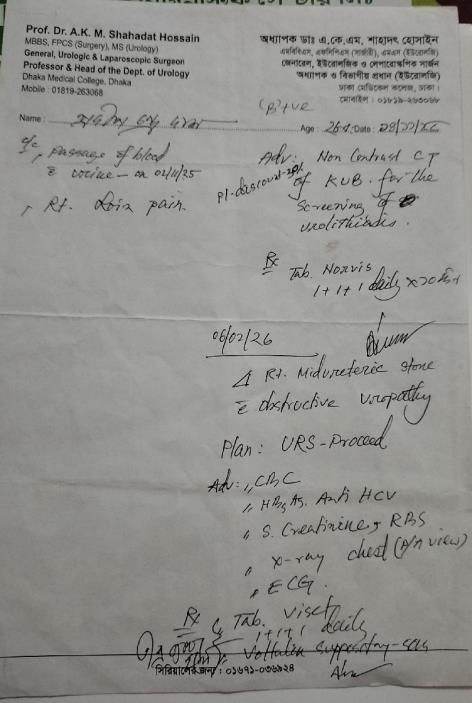 Prof. Dr. A.K. M. Shahadat Hossain
MBBS, FPCS (Surgery), MS (Urology)
General, Urologic & Laparoscopic Surgeon
Professor & Head of the Dept. of Urology
Dhaka Medical College, Dhaka
Mobile : 01819-263068
অধ্যাপক ডাঃ এ.কে.এম. শাহাদৎ হোসাইন
এমবিবিএস, এফসিপিএস (সার্জারী), এমএস (ইউরোলজি)
জেনারেল, ইউরোলজিক ও লেপারোস্কপিক সার্জন
অধ্যাপক ও বিভাগীয় প্রধান (ইউরোলজি)
ঢাকা মেডিকেল কলেজ, ঢাকা।
মোবাইল : ০১৮১৯-২৬৩০৬৮
(B)+ve
Name :
Age : 26 Date :
c/c
, Passage of blood
c̄ urine - on 02/11/25
, Rt. Loin pain.
Adv: Non Contrast CT
of KUB. for the
screening of
urolithiasis.
Rx
Tab. Norvis
1+1+1 daily
06/02/26
Δ Rt. Midureteric Stone
c̄ obstructive Uropathy
Plan: URS-Proceed
Adv: , CBC
" HBsAg. Anti HCV
" S. Creatinine, RBS
" X-ray chest (P/A view)
, ECG.
Rx
Tab. Viset
1+1+1 daily
Voltalin Suppository
সিরিয়ালের জন্য : ০১৬৭১-০৩৬৯২৪